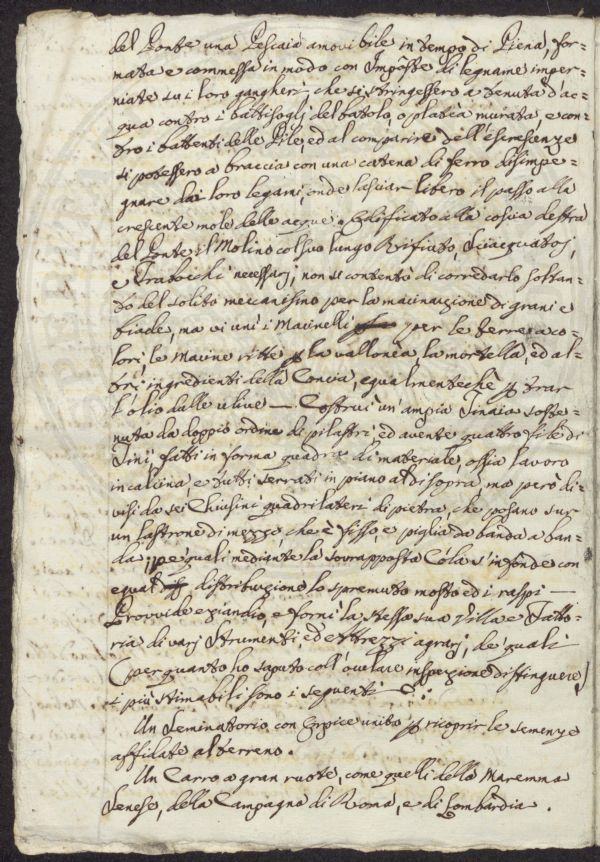 del Ponte una Pescaia amovibile in tempo di Piena, for-
mata e commessa in modo con Imposte di legname imper-
niate su i loro gangheri, che si stringessero a tenuta d'ac-
qua contro i battisogli del batolo, o platèa murata, e con-
tro i battenti delle Pile, ed al comparire dell'escrescenze
si potessero a braccia con una catena di ferro disimpe-
gnare dai loro legami, onde lasciar libero il passo alla
crescente mole delle acque. Edificato alla coscia destra
del Ponte il Molino col suo lungo Rifiuto, Sciacquatoj,
e Trabocchi necessarj, non si contentò di corredarlo soltan-
to del solito meccanismo per la macinazione di grani e
biade, ma vi unì i Macinelli per le terre a co-
lori, le Macine ritte p la vallonèa, la mortella, ed al-
tri ingredienti della Concia, egualmentechè p trar
l'olio dalle ulive — Costruì un'ampia Tinaia soste-
nuta da doppio ordine di pilastri, ed avente quattro file di
Tini, fatti in forma quadra di materiale, ossia lavoro
in calcina, e tutti serrati in piano al di sopra, ma però di-
visi da sei Chiusini quadrilateri di pietra, che posano sur
un lastrone di mezzo, che è fisso e piglia da banda a ban-
da; pe' quali mediante la sovrapposta Cola s'infonde con
egual distribuzione lo spremuto mosto ed i raspi —
Provvide eziandio, e fornì la stessa sua Villa e Fatto-
ria di varj Strumenti, ed Attrezzi agrarj, de' quali
(per quanto ho saputo coll'oculare inspezione distinguere)
i più stimabili sono i seguenti
Un Seminatorio con Erpice unito p ricoprir le semenze
affidate al terreno.
Un Carro a gran ruote, come quelli della Maremma
Senese, della Campagna di Roma, e di Lombardia.